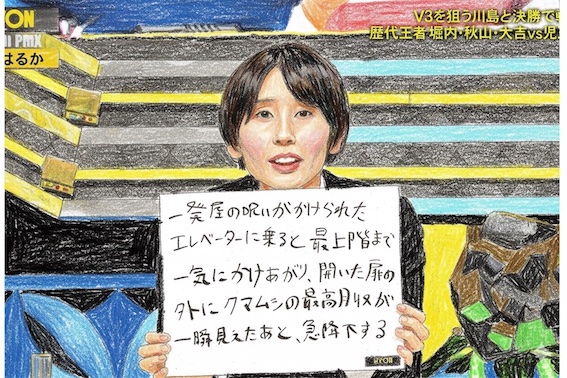 V3を狙う川島と決勝で
歴代王者 堀内・秋山・大吉vs児
はるか
一発屋の呪いがかけられた
エレベーターに乗ると最上階まで
一気にかけあがり、開いた扉の
外にクマムシの最高月収が
一瞬見えたあと、急降下する